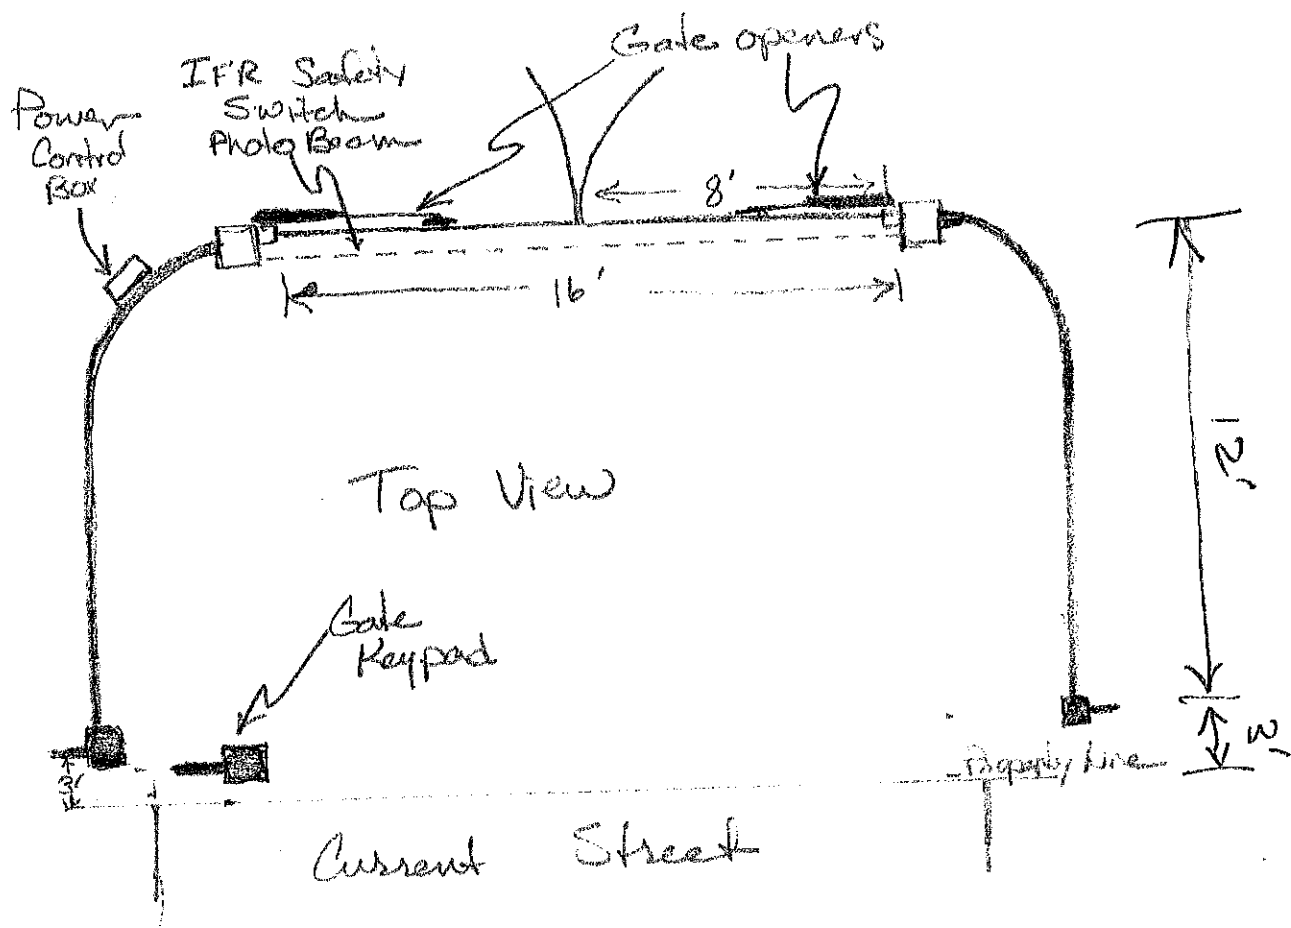 Gate openers
IFR Safety
Switch
Photo Beam
Power
Control
Box
8'
16'
12'
Top View
Gate
Keypad
3'
3'
Property Line
Current Street